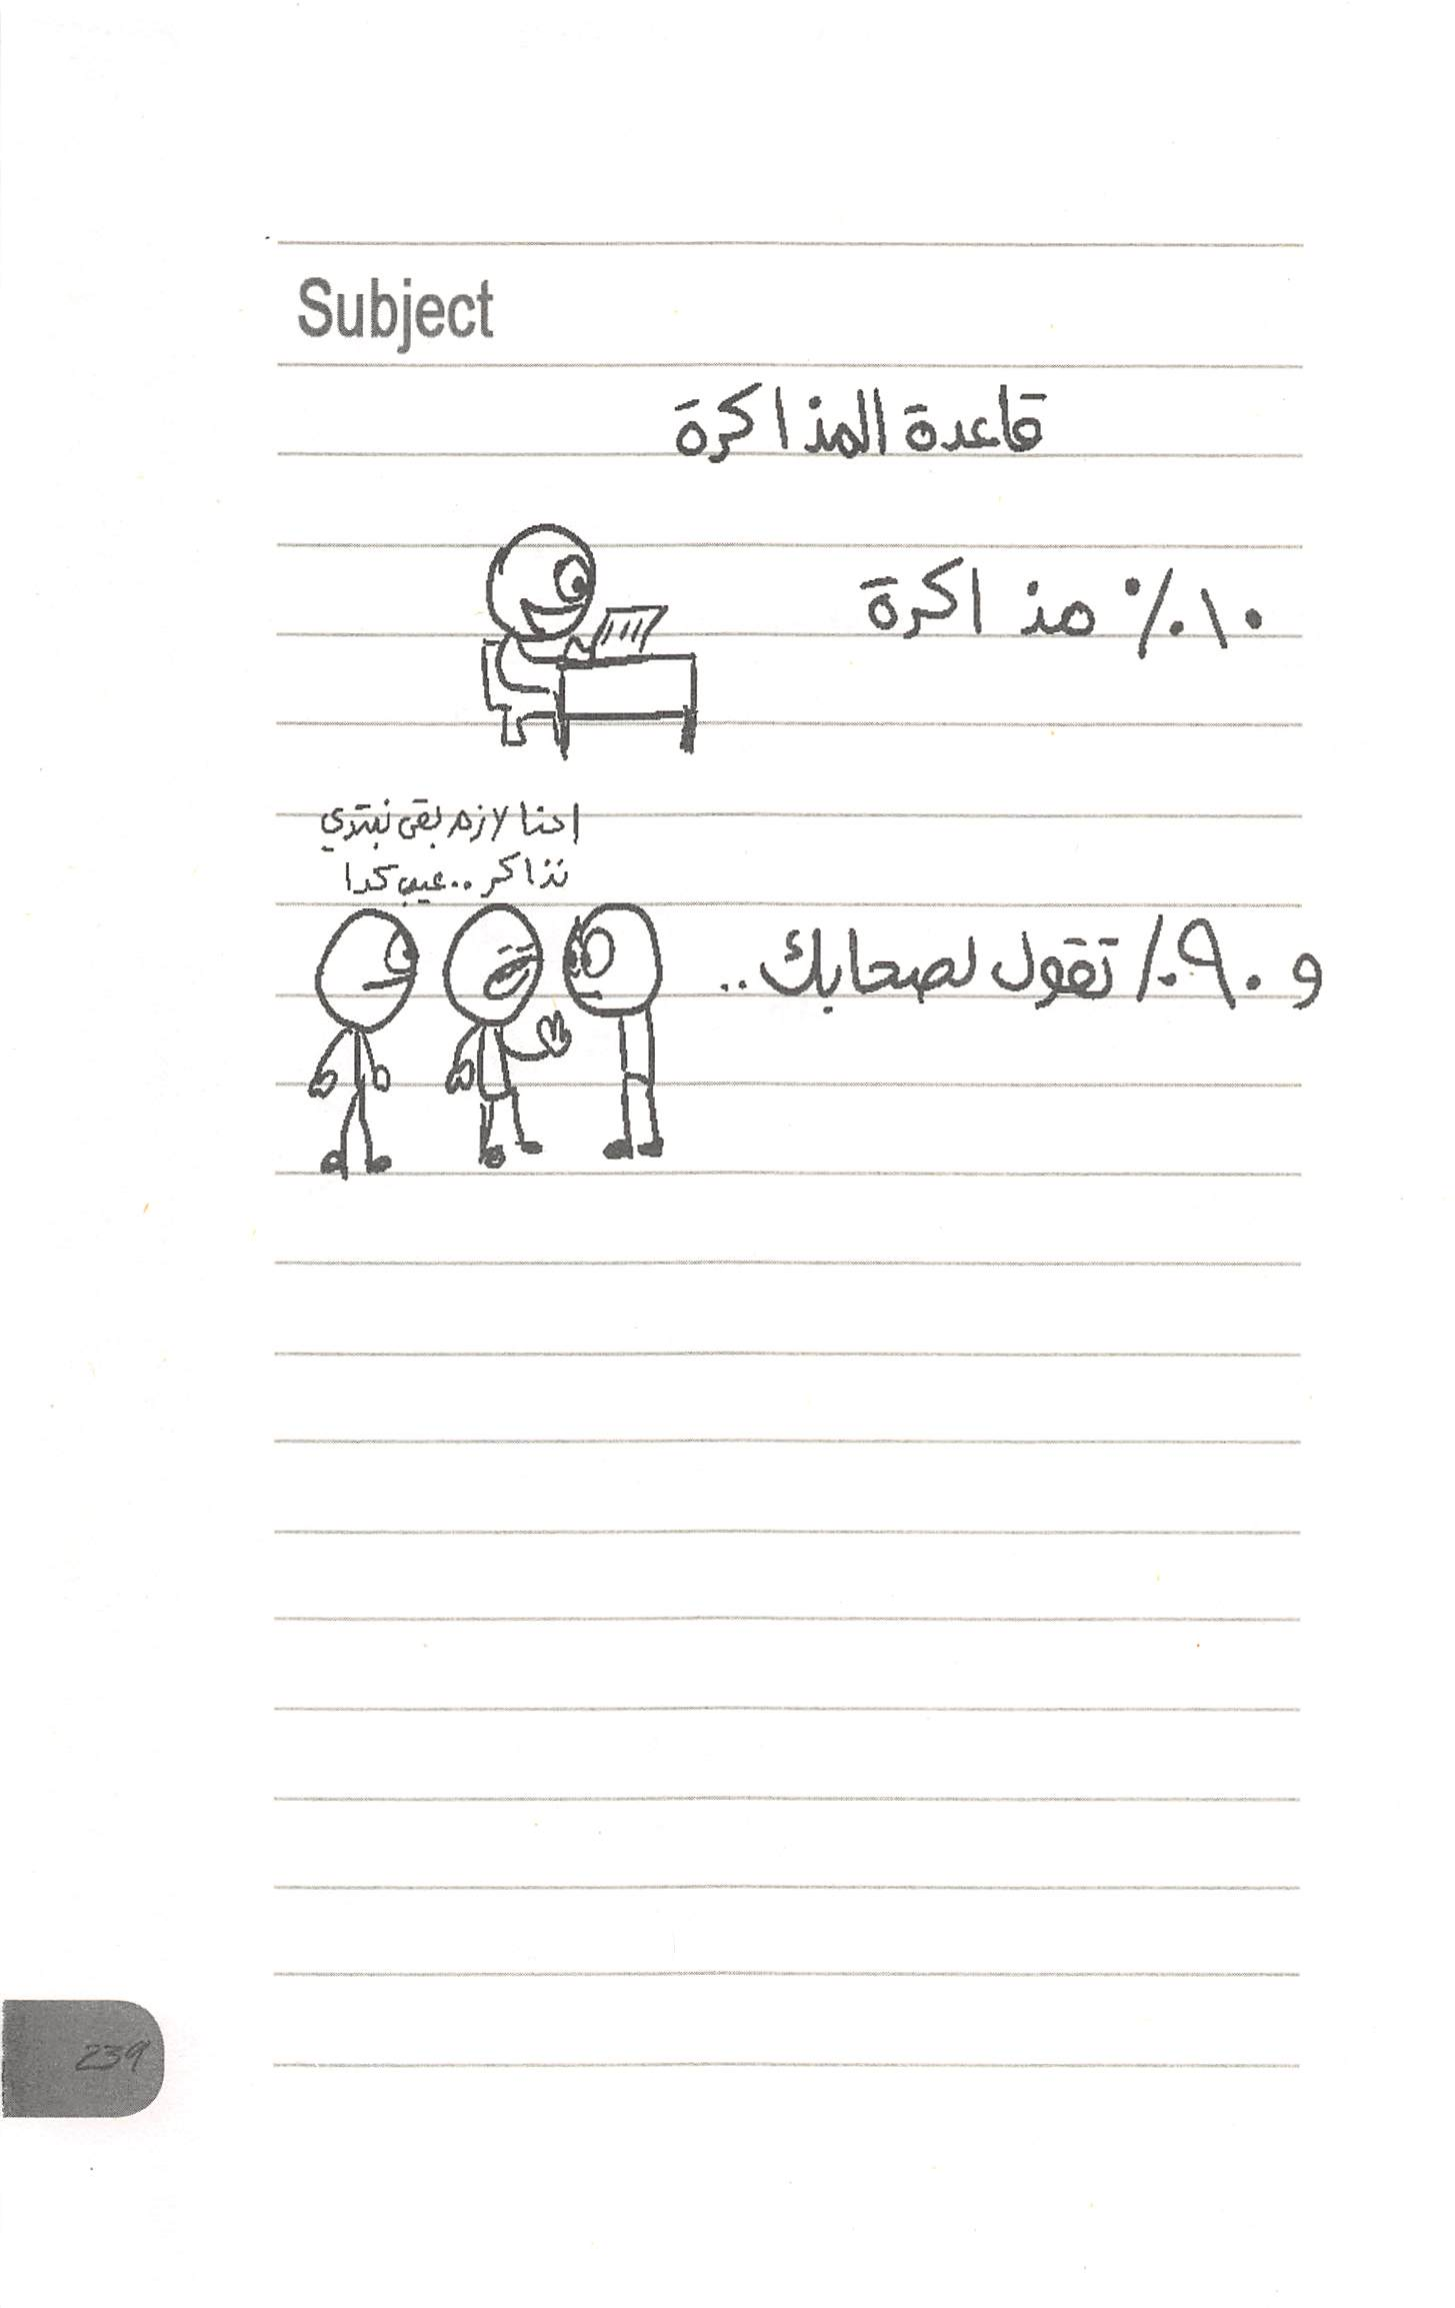 Subject
قاعدة المذاكرة
١٠٪ مذاكرة
احنا لازم بقى نبتدي
نذاكر .. عيب كدا
و ٩٠٪ تقول لصحابك ..
239